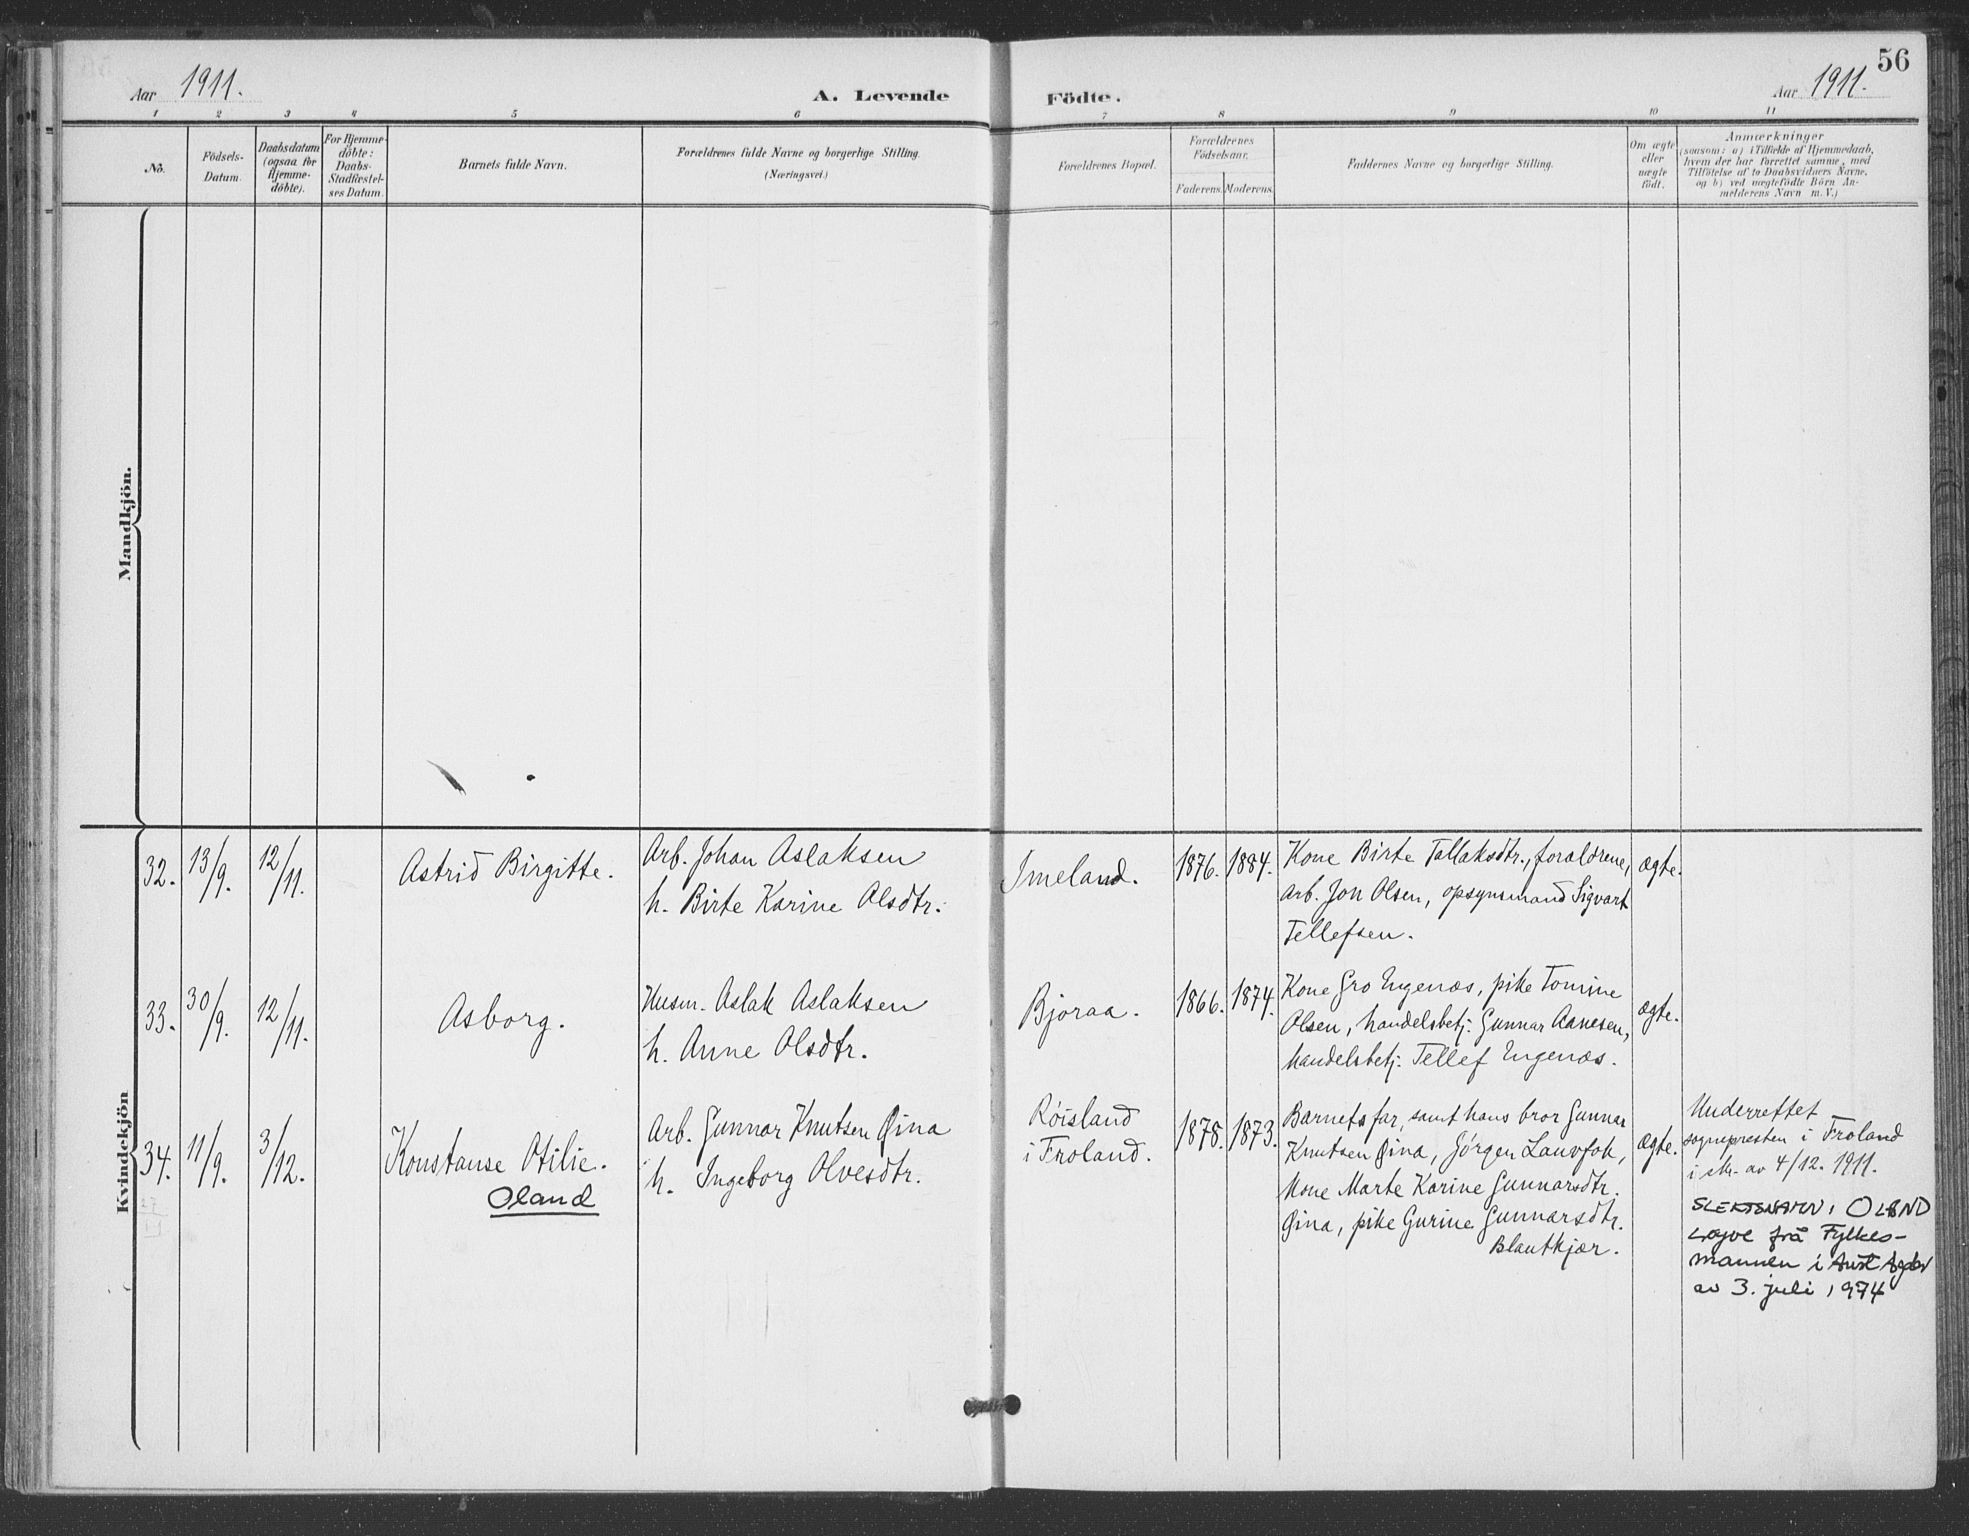 56
Aar 1911.
A. Levende Födte.
Aar 1911.
1 2 3 4 5 6 7 8 9 10 11
No.
Födsels-
Datum.
Daabsdatum
(ogsaa for
Hjemme-
döbte).
For Hjemme-
döbte:
Daabs-
Stadfæstel-
ses Datum.
Barnets fulde Navn.
Forældrenes fulde Navne og borgerlige Stilling.
(Næringsvei.)
Forældrenes Bopæl.
Forældrenes
Födselsaar.
Faderens. Moderens.
Faddernes Navne og borgerlige Stilling.
Om ægte
eller
uægte
födt.
Anmærkninger
(saasom: a) i Tilfælde af Hjemmedaab,
hvem der har forrettet samme, med
Tilföielse af to Daabsvidners Navne,
og b) ved uægtefödte Börn An-
melderens Navn m. V.)
Mandkjön.
Kvindekjön
32. 13/9. 12/11. Astrid Birgitte.
Arb. Johan Aslaksen
h. Birte Karine Olsdtr.
Imeland. 1876. 1884.
Kone Birte Tallaksdtr., forældrene,
arb. Jon Olsen, opsynsmand Sigvart
Tellefsen.
ægte.
33. 30/9. 12/11. Asborg.
Husm. Aslak Aslaksen
h. Anne Olsdtr.
Bjoraa. 1866. 1874.
Kone Gro Engenæs, pike Tomine
Olsen, handelsbetj. Gunnar Aanesen,
handelsbetj. Tellef Engenæs.
ægte.
34. 11/9. 3/12. Konstanse Otilie.
Oland
Arb. Gunnar Knutsen Øina
h. Ingeborg Olvesdtr.
Røisland
i Froland.
1878. 1873.
Barnets far, samt hans bror Gunnar
Knutsen Øina, Jørgen Lauvfok,
Kone Marte Karine Gunnarsdtr.
Øina, pike Gurine Gunnarsdtr.
Blautkjær.
ægte.
Underrettet
sognepresten i Froland
i skr. av 4/12. 1911.
SLEKTSNAMN: OLAND
Løyve frå Fylkes-
mannen i Aust Agder
av 3. juli 1974